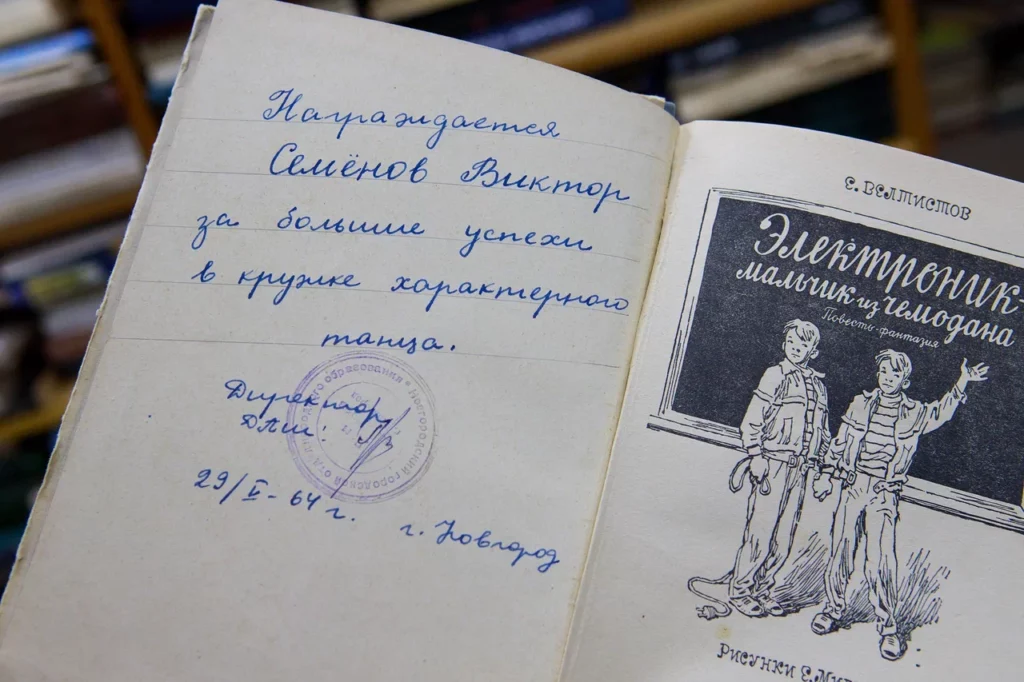 Награждается
Семёнов Виктор
за большие успехи
в кружке характерного
танца.
Директор
ДМШ:
29/V-64 г.
г. Новгород
Новгородский городской отдел народного образования
Е. Велтистов
Электроник-
мальчик из чемодана
Повесть-фантазия
Рисунки Е. Миг